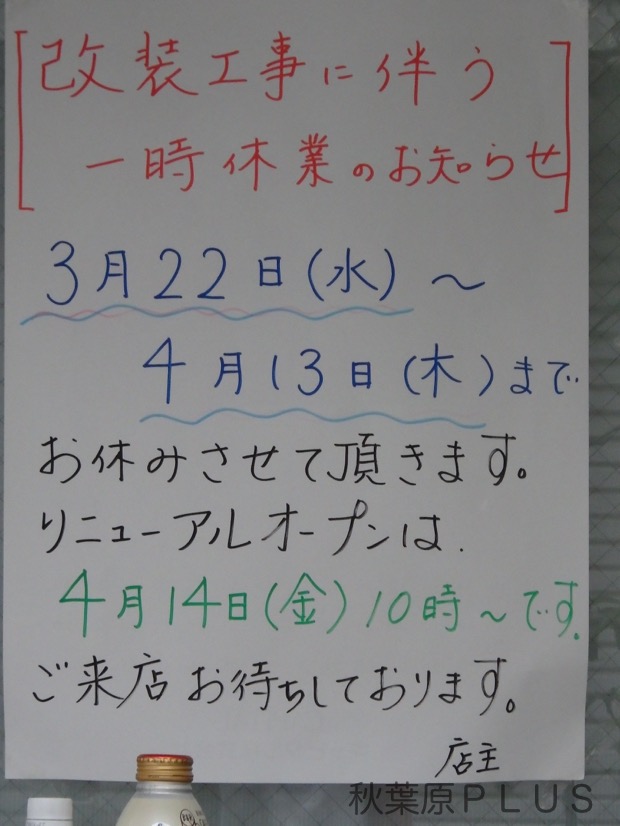 改装工事に伴う
一時休業のお知らせ
3月22日(水)～
4月13日(木)まで
お休みさせて頂きます。
リニューアルオープンは.
4月14日(金)10時～です.
ご来店お待ちしております。
店主
秋葉原PLUS